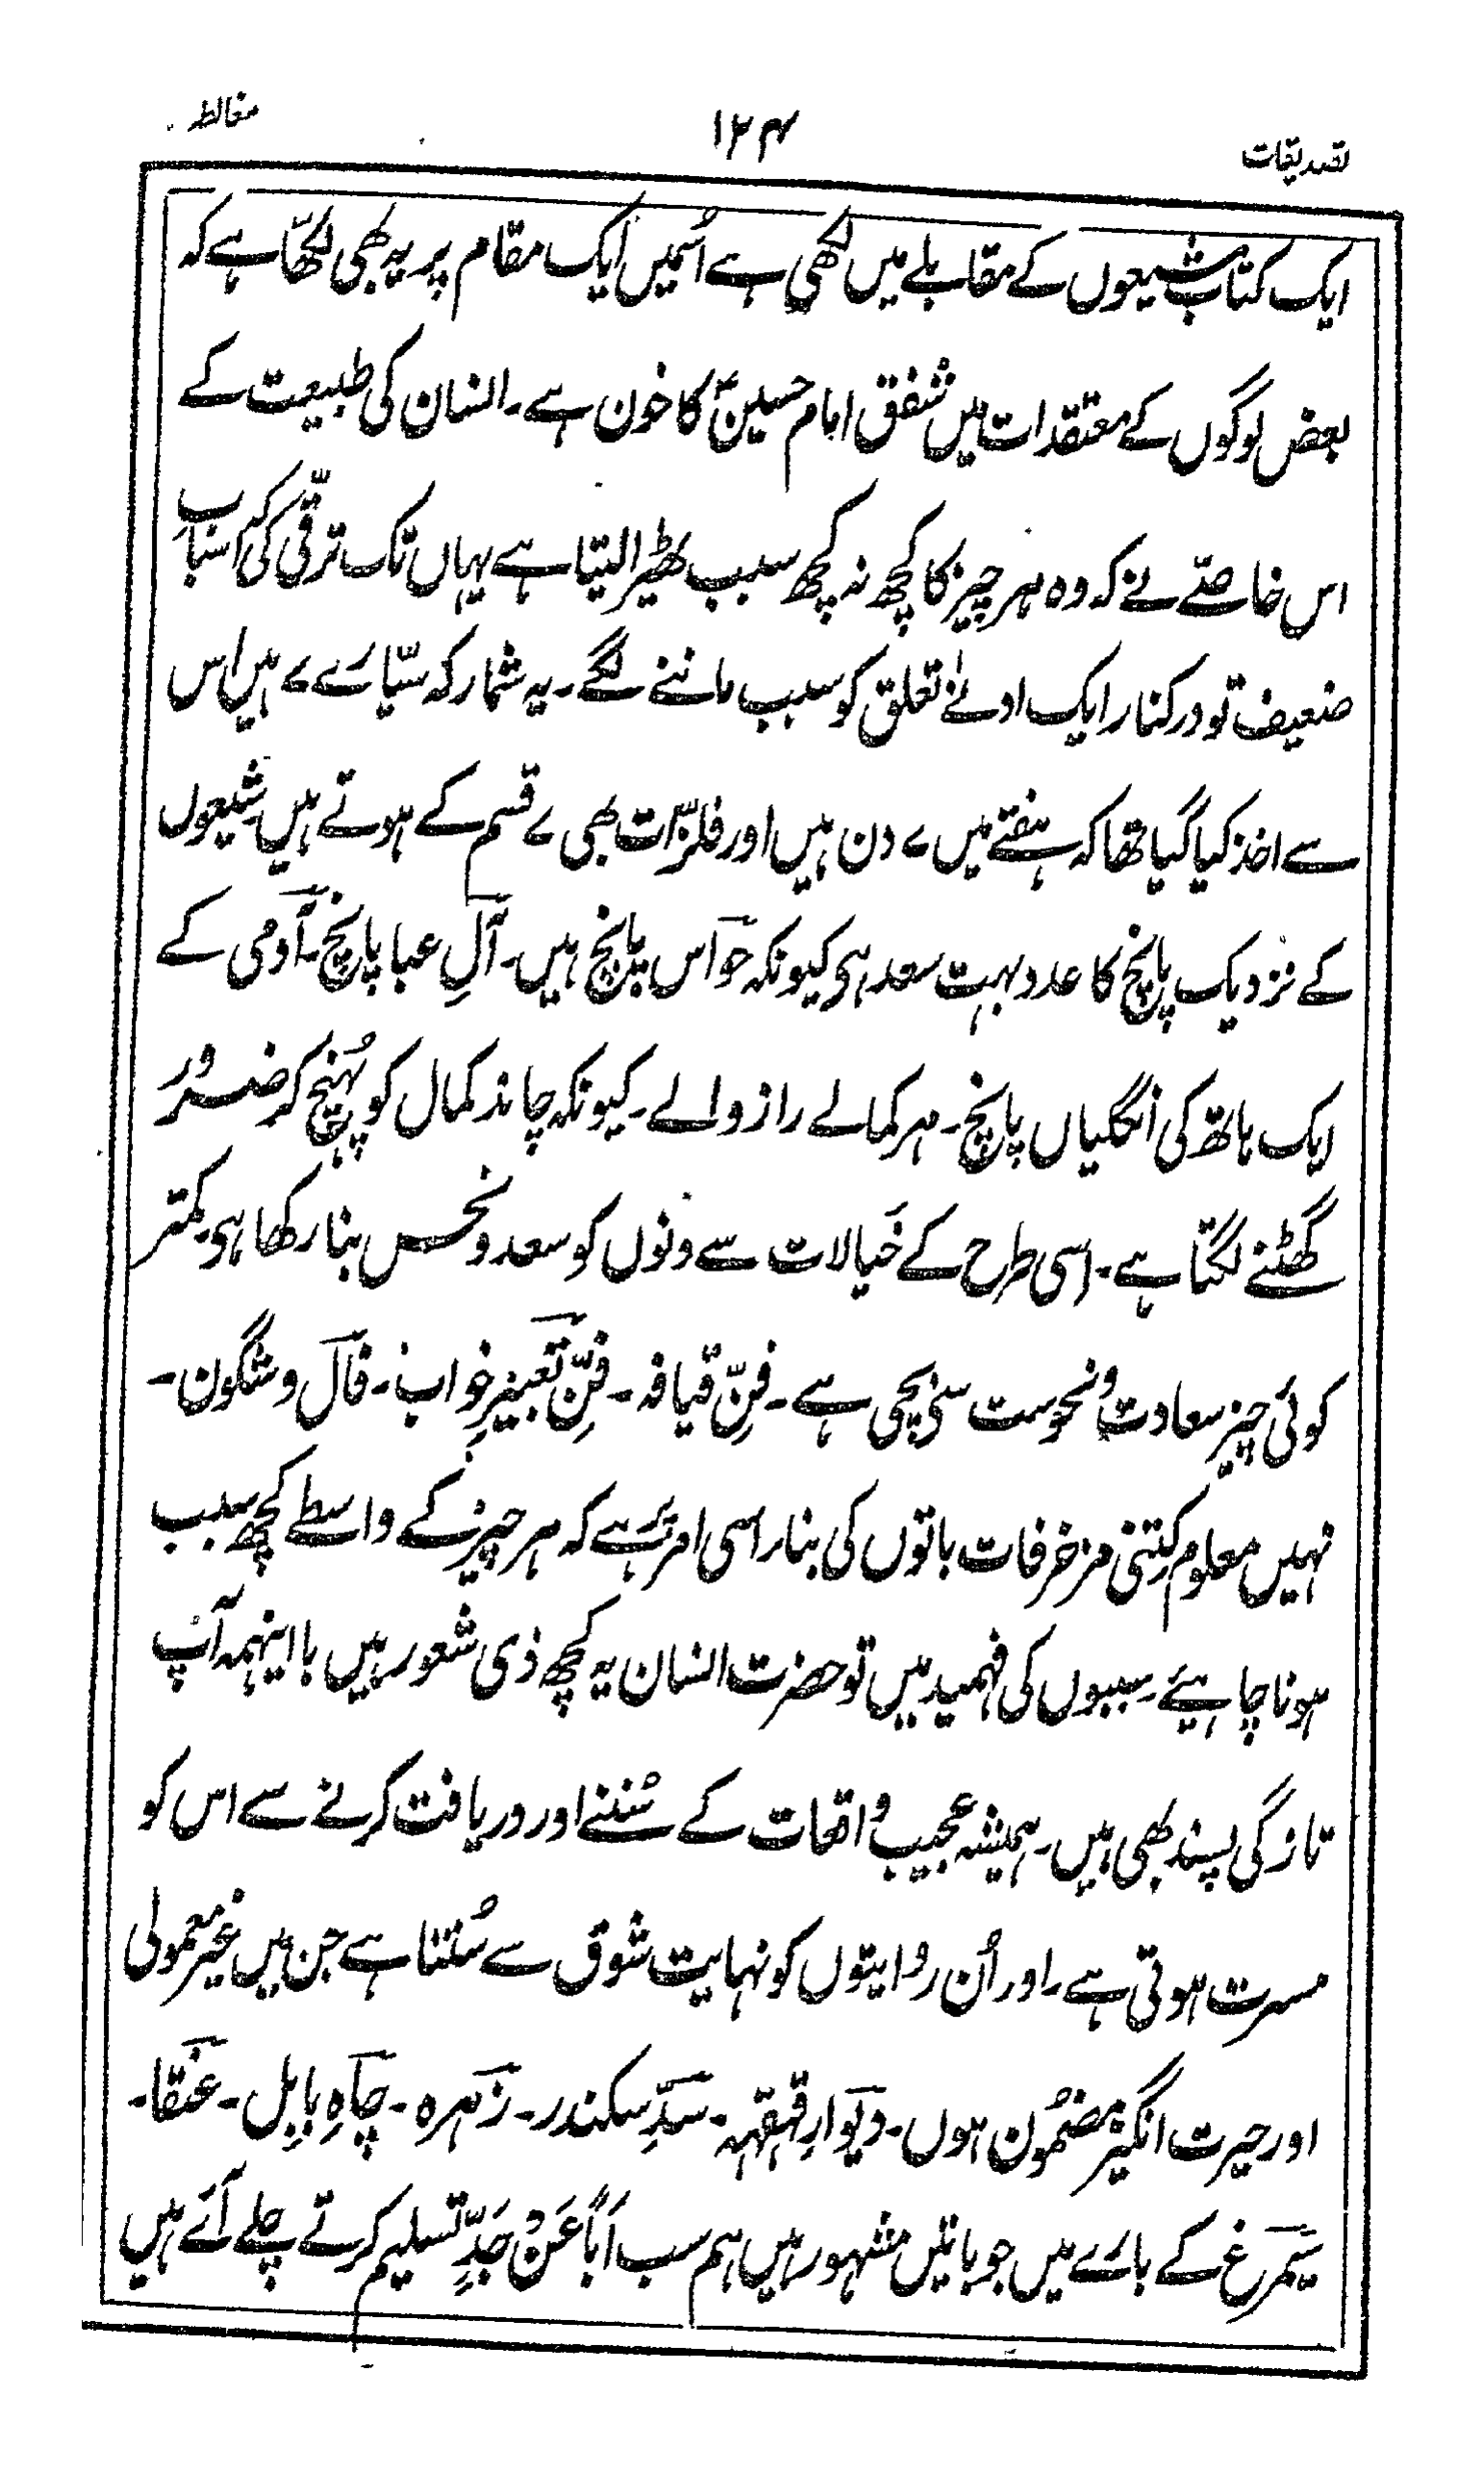 تصدیقات ۱۲۴ مغالط
ایک کتاب شیعوں کے مقابلے میں لکھی ہے اُسمیں ایک مقام پر یہ بھی لکھّا ہے کہ
بعض لوگوں کے معتقدات میں شفق امام حسینؑ کا خون ہے۔ انسان کی طبیعت کے
اس خاصّے نے کہ وہ ہر چیز کا کچھ نہ کچھ سبب ٹھیرا لیتا ہے یہاں تک ترقّی کی کہ اسبابِ
ضعیف تو درکنار ایک ادنےٰ تعلق کو سبب ماننے لگے۔ یہ شمار کہ سیّارے ۷ ہیں اس
سے اخذ کیا گیا تھا کہ ہفتے میں ۷ دن ہیں اور فلزّات بھی ۷ قسم کے ہوتے ہیں۔ شیعوں
کے نزدیک پانچ کا عدد بہت سعد ہی کیونکہ حواس پانچ ہیں۔ آلِ عبا پانچ۔ آدمی کے
ایک ہاتھ کی اُنگلیاں پانچ۔ ہر کمالے را زوالے۔ کیونکہ چاند کمال کو پہُنچ کر ضرور
گھٹنے لگتا ہے۔ اِسی طرح کے خیالات سے دنوں کو سعد و نحس بنا رکھا ہی۔ کمتر
کوئی چیز سعادت و نحوست سی بچی ہے۔ فنِّ قیافہ۔ فنِّ تعبیرِ خواب۔ فال و شگون۔
نہیں معلوم کِتنی مزخرفات باتوں کی بناء اسی امر پر ہے کہ ہر چیز کے واسطے کچھ سبب
ہونا چاہیئے۔ سببوں کی فہمید میں تو حضرت انسان یہ کچھ ذی شعور ہیں با اینہمہ آپ
تازگی پسند بھی ہیں۔ ہمیشہ عجیب واقعات کے سُننے اور دریافت کرنے سے اس کو
مسرت ہوتی ہے۔ اور اُن روایتوں کو نہایت شوق سے سُنتا ہے جن میں غیر معمولی
اور حیرت انگیز مضمُون ہوں۔ دیوارِ قہقہہ۔ سدِّ سکندر۔ زہرہ۔ چاہِ بابِل۔ عنقا۔
سیمرغ کے بارے میں جو باتیں مشہور ہیں ہم سب اَبًا عَنْ جَدٍّ تسلیم کرتے چلے آئے ہیں